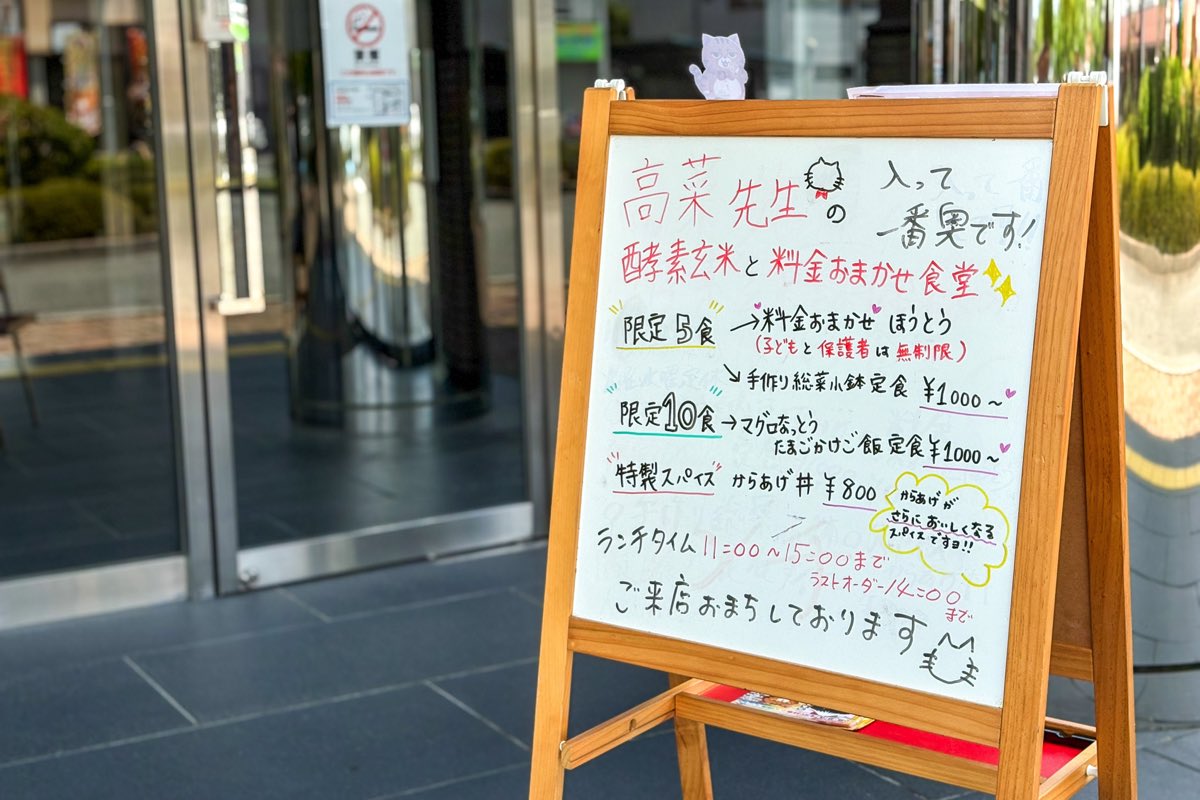 高菜先生の
入って
一番奥です!
酵素玄米と料金おまかせ食堂
限定5食→料金おまかせ ほうとう
(子どもと保護者は無制限)
↘手作り総菜小鉢定食 ¥1000~
限定10食→マグロなっとう
たまごかけご飯定食¥1000~
特製スパイス からあげ丼 ¥800
からあげが
さらにおいしくなる
スパイスですヨ!!
ランチタイム11:00~15:00まで
ラストオーダー14:00
まで
ご来店おまちしております